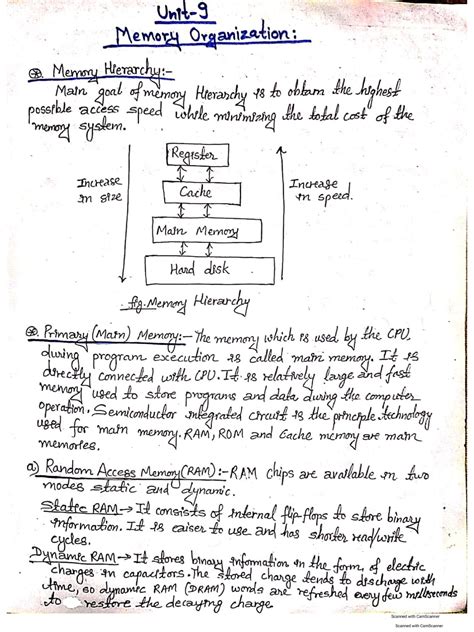 Unit-9
Memory Organization:
Memory Hierarchy:-
Main goal of memory Hierarchy is to obtain the highest
possible access speed while minimizing the total cost of the
memory system.
Register
Cache
Main Memory
Hard disk
Increase
in size
Increase
in speed.
fig. Memory Hierarchy
Primary (Main) Memory:- The memory which is used by the CPU
during program execution is called main memory. It is
directly connected with CPU. It is relatively large and fast
memory used to store programs and data during the computer
operation. Semiconductor integrated circuit is the principle technology
used for main memory. RAM, ROM and Cache memory are main
memories.
a) Random Access Memory (RAM):- RAM chips are available in two
modes static and dynamic.
Static RAM → It consists of internal flip-flops to store binary
information. It is eaiser to use and has shorter read/write
cycles.
Dynamic RAM → It stores binary information in the form of electric
charges in capacitors. The stored charge tends to discharge with
time, so dynamic RAM (DRAM) words are refreshed every few milliseconds
to restore the decaying charge
Scanned with CamScanner
Scanned with CamScanner